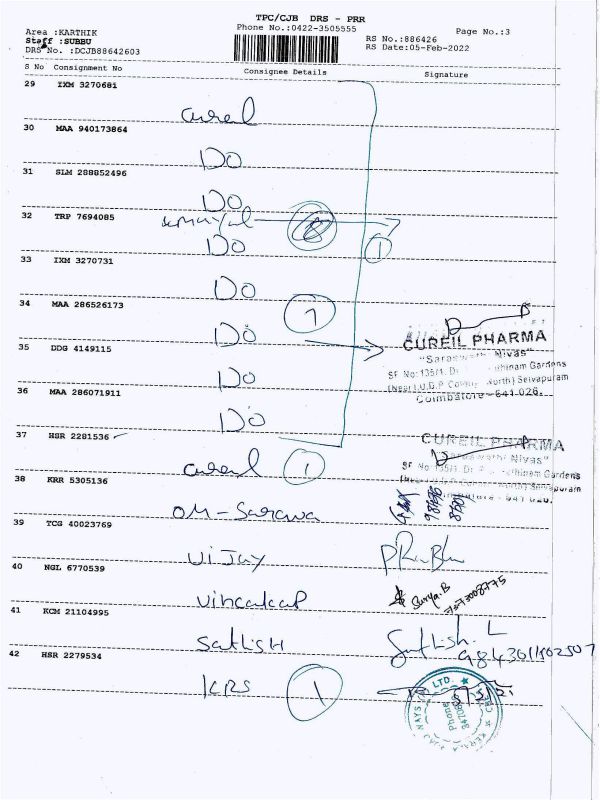 TPC/CJB DRS - PRR
Area :KARTHIK
Phone No.:0422-3505555
Page No.:3
Staff :SUBBU
RS No.:886426
DRS No. :DCJB88642603
RS Date:05-Feb-2022
S No Consignment No Consignee Details Signature
29 IXM 3270681
cureil
30 MAA 940173864
Do
31 SLM 288852496
Do
32 TRP 7694085
8
Do
1
33 IXM 3270731
Do
34 MAA 286526173
7
Do
CUREIL PHARMA
35 DDG 4149115
"Saraswathi Nivas"
SF No:135/1, Gardens
Do
(Near) U.D.P North) Selvapuram
36 MAA 286071911
Coimbatore - 641 026.
Do
37 HSR 2281536
CUREIL PHARMA
Nivas"
cureil 1
SF No Gardens
38 KRR 5305136
Selvapuram
641 026.
OM-Sarava
39 TCG 40023769
Vijay
PRaBhu
40 NGL 6770539
Surya.B
41 KCM 21104995
Satlish
Satlish. L
42 HSR 2279534
KRS
1
LTD.
Phone